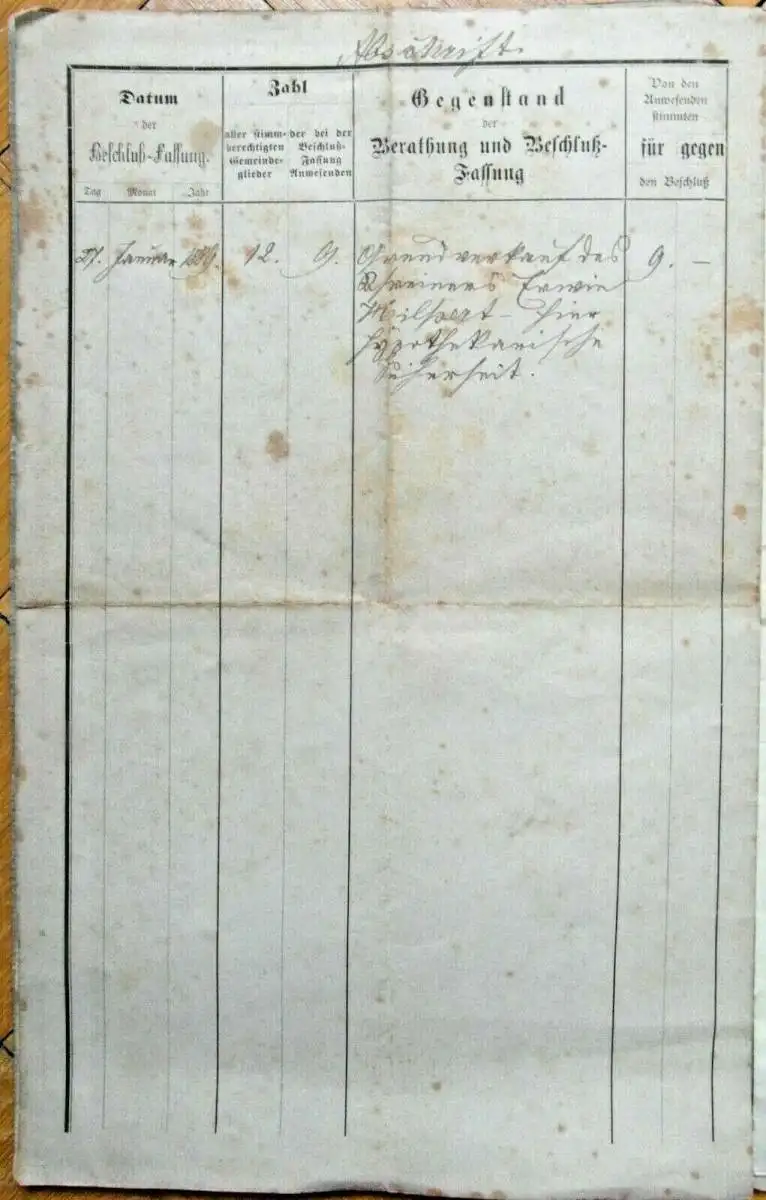 Abschrift.
Datum
der
Beschluß-Fassung.
Tag Monat Jahr
Zahl
aller stimm-
berechtigten
Gemeinde-
glieder
der bei der
Beschluß-
Fassung
Anwesenden
Gegenstand
der
Berathung und Beschluß-
Fassung
Von den
Anwesenden
stimmten
für gegen
den Beschluß
27. Januar 12. 9. Grundverkauf des 9. –
Schreiners Erwin
hier
hypothekarische
Sicherheit.